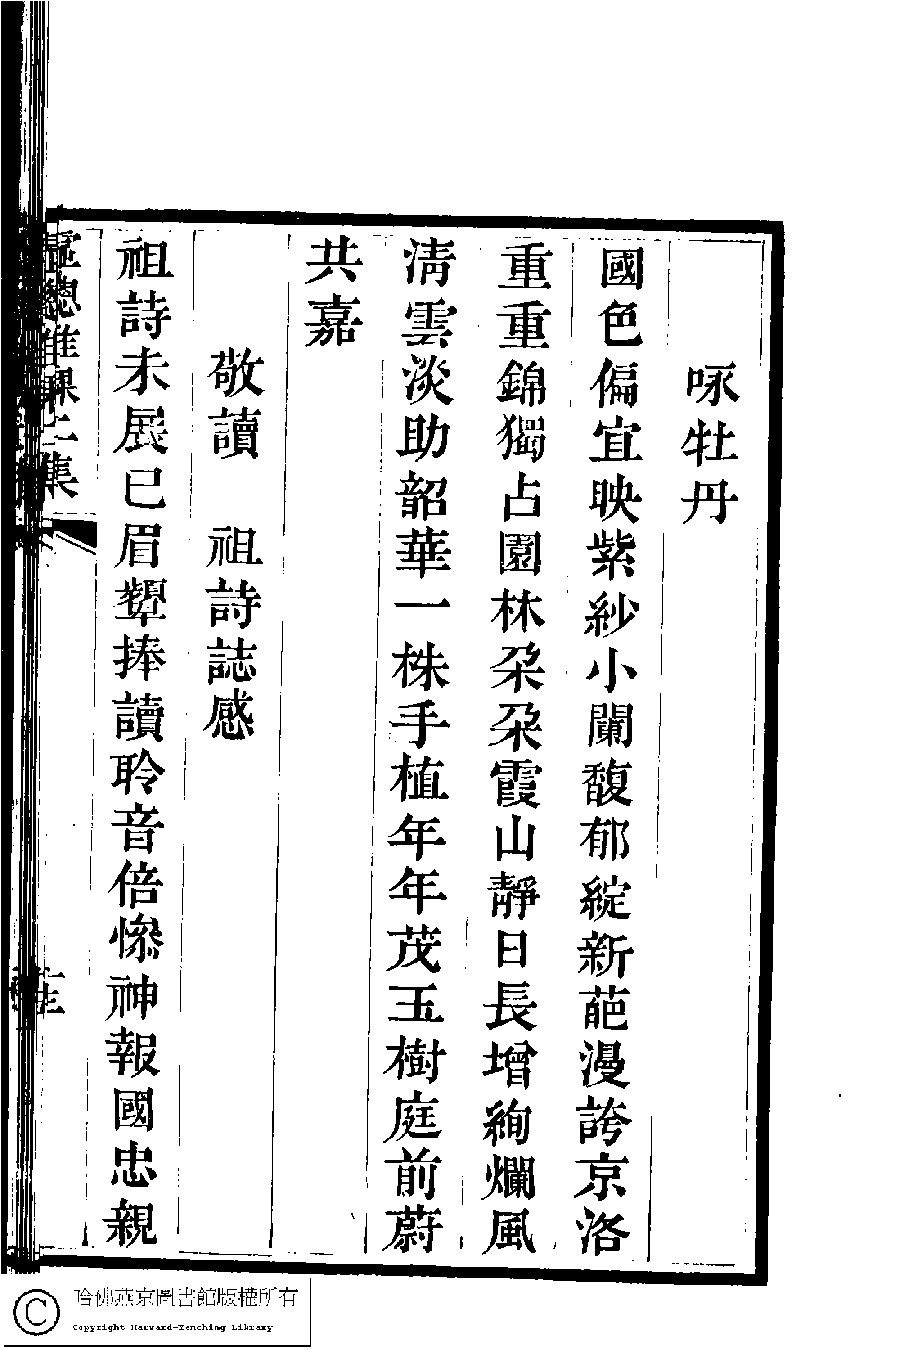 咏牡丹
國色偏宜映紫紗小闌馥郁綻新葩漫誇京洛
重重錦獨占園林朶朶霞山靜日長增絢爛風
清雲淡助韶華一株手植年年茂玉樹庭前蔚
共嘉
敬讀　祖詩誌感
祖詩未展已眉顰捧讀聆音倍慘神報國忠親
二集
哈佛燕京圖書館版權所有
Copyright Harvard-Yenching Library